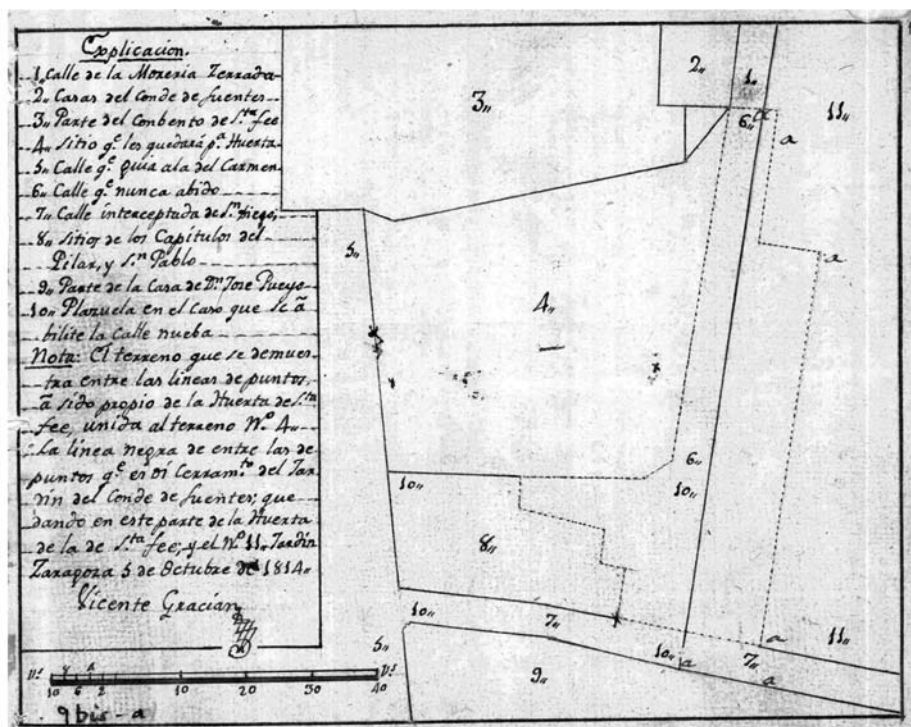 Explicacion.
1,, Calle de la Moreria Zerrada
2,, Casas del Conde de fuentes
3,, Parte del Conbento de S.ta fee
4,, Sitio q.e les quedará p.a Huerta
5,, Calle q.e guia ala del Carmen
6,, Calle q.e nunca abido
7,, Calle interceptada de S.n Diego,
8,, Sitios de los Capitulos del
Pilar, y S.n Pablo
9,, Parte de la Casa de D.n Jose Pueyo
10,, Plazuela en el Caso que se ā
bilite la Calle nueba
Nota: El terreno que se demues-
tra entre las lineas de puntos,
ā sido propio de la Huerta de S.ta
fee, unida al terreno N.o 4,,
La linea negra de entre las de
puntos q.e es oi Cerram.to del Jar
din del Conde de fuentes; que
dando en este parte de la Huerta
de la de S.ta fee; y el N.o 11,, Jardin
Zaragoza 5 de Octubre de 1814,,
Vicente Gracian
2,,
1,,
3,,
6,, a
11,,
a
a
5,,
4,,
6,,
10,,
10,,
8,,
10,,
7,,
5,,
10,, a
a
7,,
11,,
a
9,,
10 6 2 10 20 30 40
9 bis - a